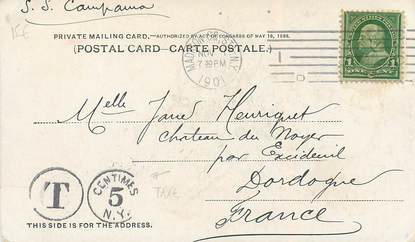 S. S. Campania
15€
PRIVATE MAILING CARD.—AUTHORIZED BY ACT OF CONGRESS OF MAY 19, 1898.
(POSTAL CARD—CARTE POSTALE.)
MADISON SQ. STA. N.Y.
NOV
7 30 PM
1901
1 ONE CENT 1
Melle Jane Henriquet
Chateau du Noyer
par Excideuil
Dordogne
France
T
CENTIMES
5
N.Y.
TAXE
THIS SIDE IS FOR THE ADDRESS.